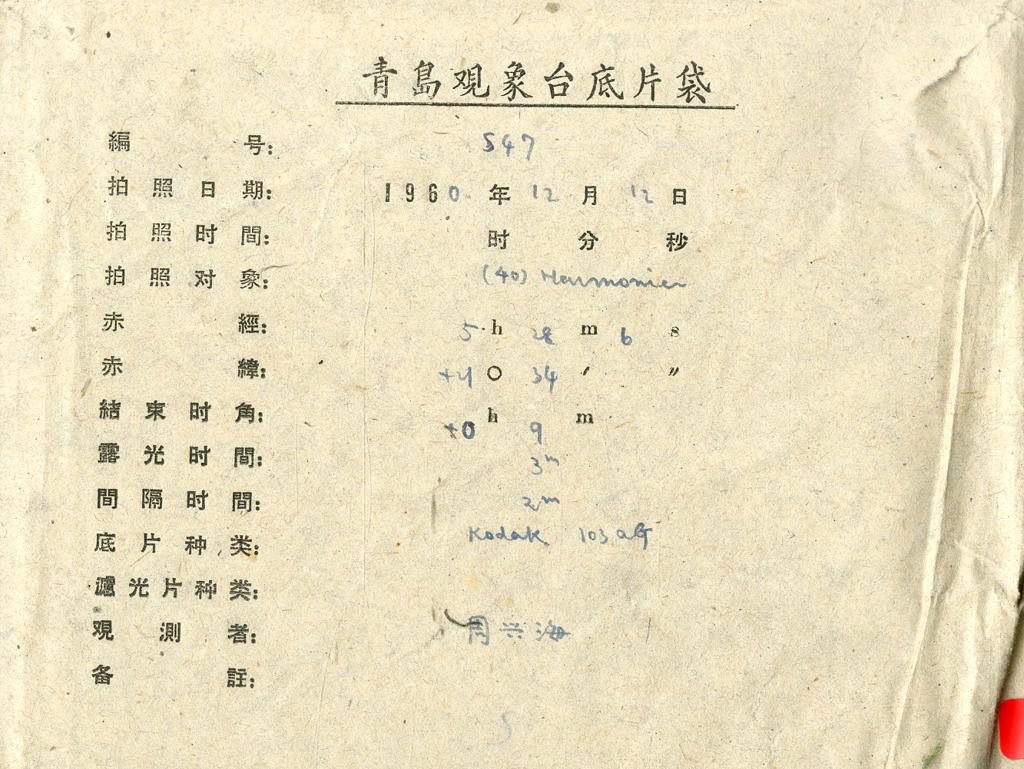 青島观象台底片袋
编号: 547
拍照日期: 1960年12月12日
拍照时間: 时 分 秒
拍照对象: (40) Harmonier
赤經: 5h 28m 6s
赤緯: 34′ ″
結束时角: +0h 9m
露光时間: 3m
間隔时間: 2m
底片种类: Kodak 103aG
濾光片种类:
观测者: 周兴海
备註:
5